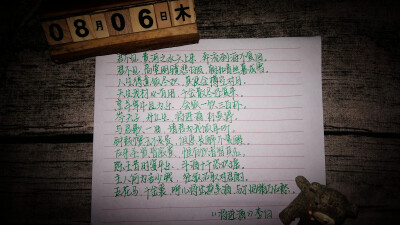 08月06日木
君不见,黄河之水天上来,奔流到海不复回。
君不见,高堂明镜悲白发,朝如青丝暮成雪。
人生得意须尽欢,莫使金樽空对月。
天生我材必有用,千金散尽还复来。
烹羊宰牛且为乐,会须一饮三百杯。
岑夫子,丹丘生,将进酒,杯莫停。
与君歌一曲,请君为我倾耳听。
钟鼓馔玉不足贵,但愿长醉不愿醒。
古来圣贤皆寂寞,惟有饮者留其名。
陈王昔时宴平乐,斗酒十千恣欢谑。
主人何为言少钱,径须沽取对君酌。
五花马,千金裘,呼儿将出换美酒,与尔同销万古愁。
《将进酒》李白